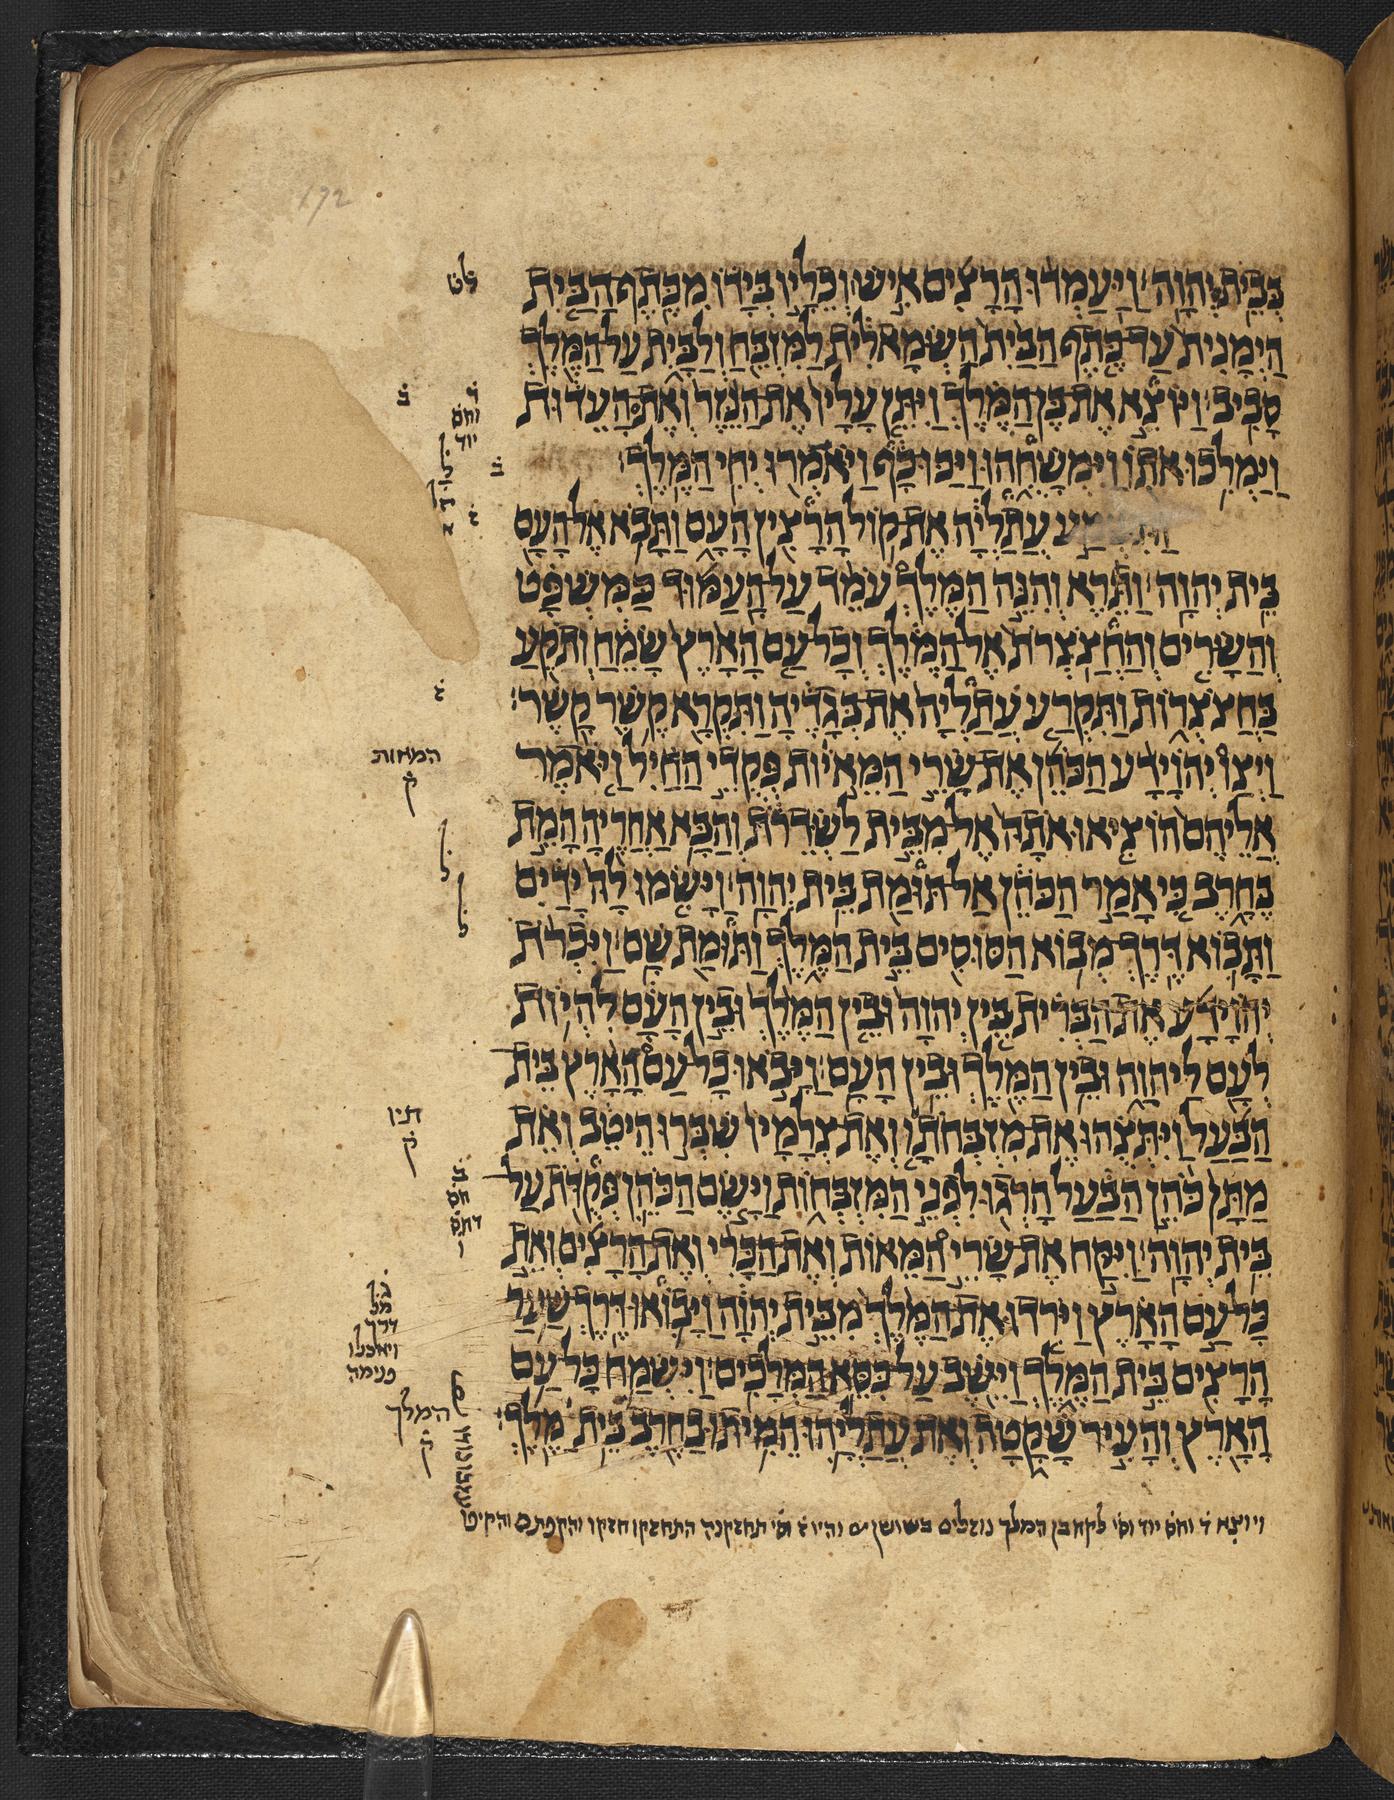 172
בבית יהוה ויעמדו הרצים איש וכליו בידו מכתף הבית
הימנית עד כתף הבית השמאלית למזבח ולבית על המלך
סביב ויוצא את בן המלך ויתן עליו את הנזר ואת העדות
וימלכו אתו וימשחהו ויכו כף ויאמרו יחי המלך
ותשמע עתליה את קול הרצין העם ותבא אל העם
בית יהוה ותרא והנה המלך עמד על העמוד כמשפט
והשרים והחצצרות אל המלך וכל עם הארץ שמח ותקע
בחצצרות ותקרע עתליה את בגדיה ותקרא קשר קשר
ויצו יהוידע הכהן את שרי המאיות פקדי החיל ויאמר
אליהם הוציאו אתה אל מבית לשדרת והבא אחריה המת
בחרב כי אמר הכהן אל תומת בית יהוה וישמו לה ידים
ותבוא דרך מבוא הסוסים בית המלך ותומת שם ויכרת
יהוידע את הברית בין יהוה ובין המלך ובין העם להיות
לעם ליהוה ובין המלך ובין העם ויבאו כל עם הארץ בית
הבעל ויתצהו את מזבחתו ואת צלמיו שברו היטב ואת
מתן כהן הבעל הרגו לפני המזבחות וישם הכהן פקדת על
בית יהוה ויקח את שרי המאות ואת הכרי ואת הרצים ואת
כל עם הארץ וירדו את המלך מבית יהוה ויבואו דרך שער
הרצים בית המלך וישב על כסא המלכים וישמח כל עם
הארץ והעיר שקטה ואת עתליהו המיתו בחרב בית מלך
המאות
ק
תיו
ק
דרך
פנימה
המלך
ק
ויוצא ד וחס יוד וסי לקח בן המלך